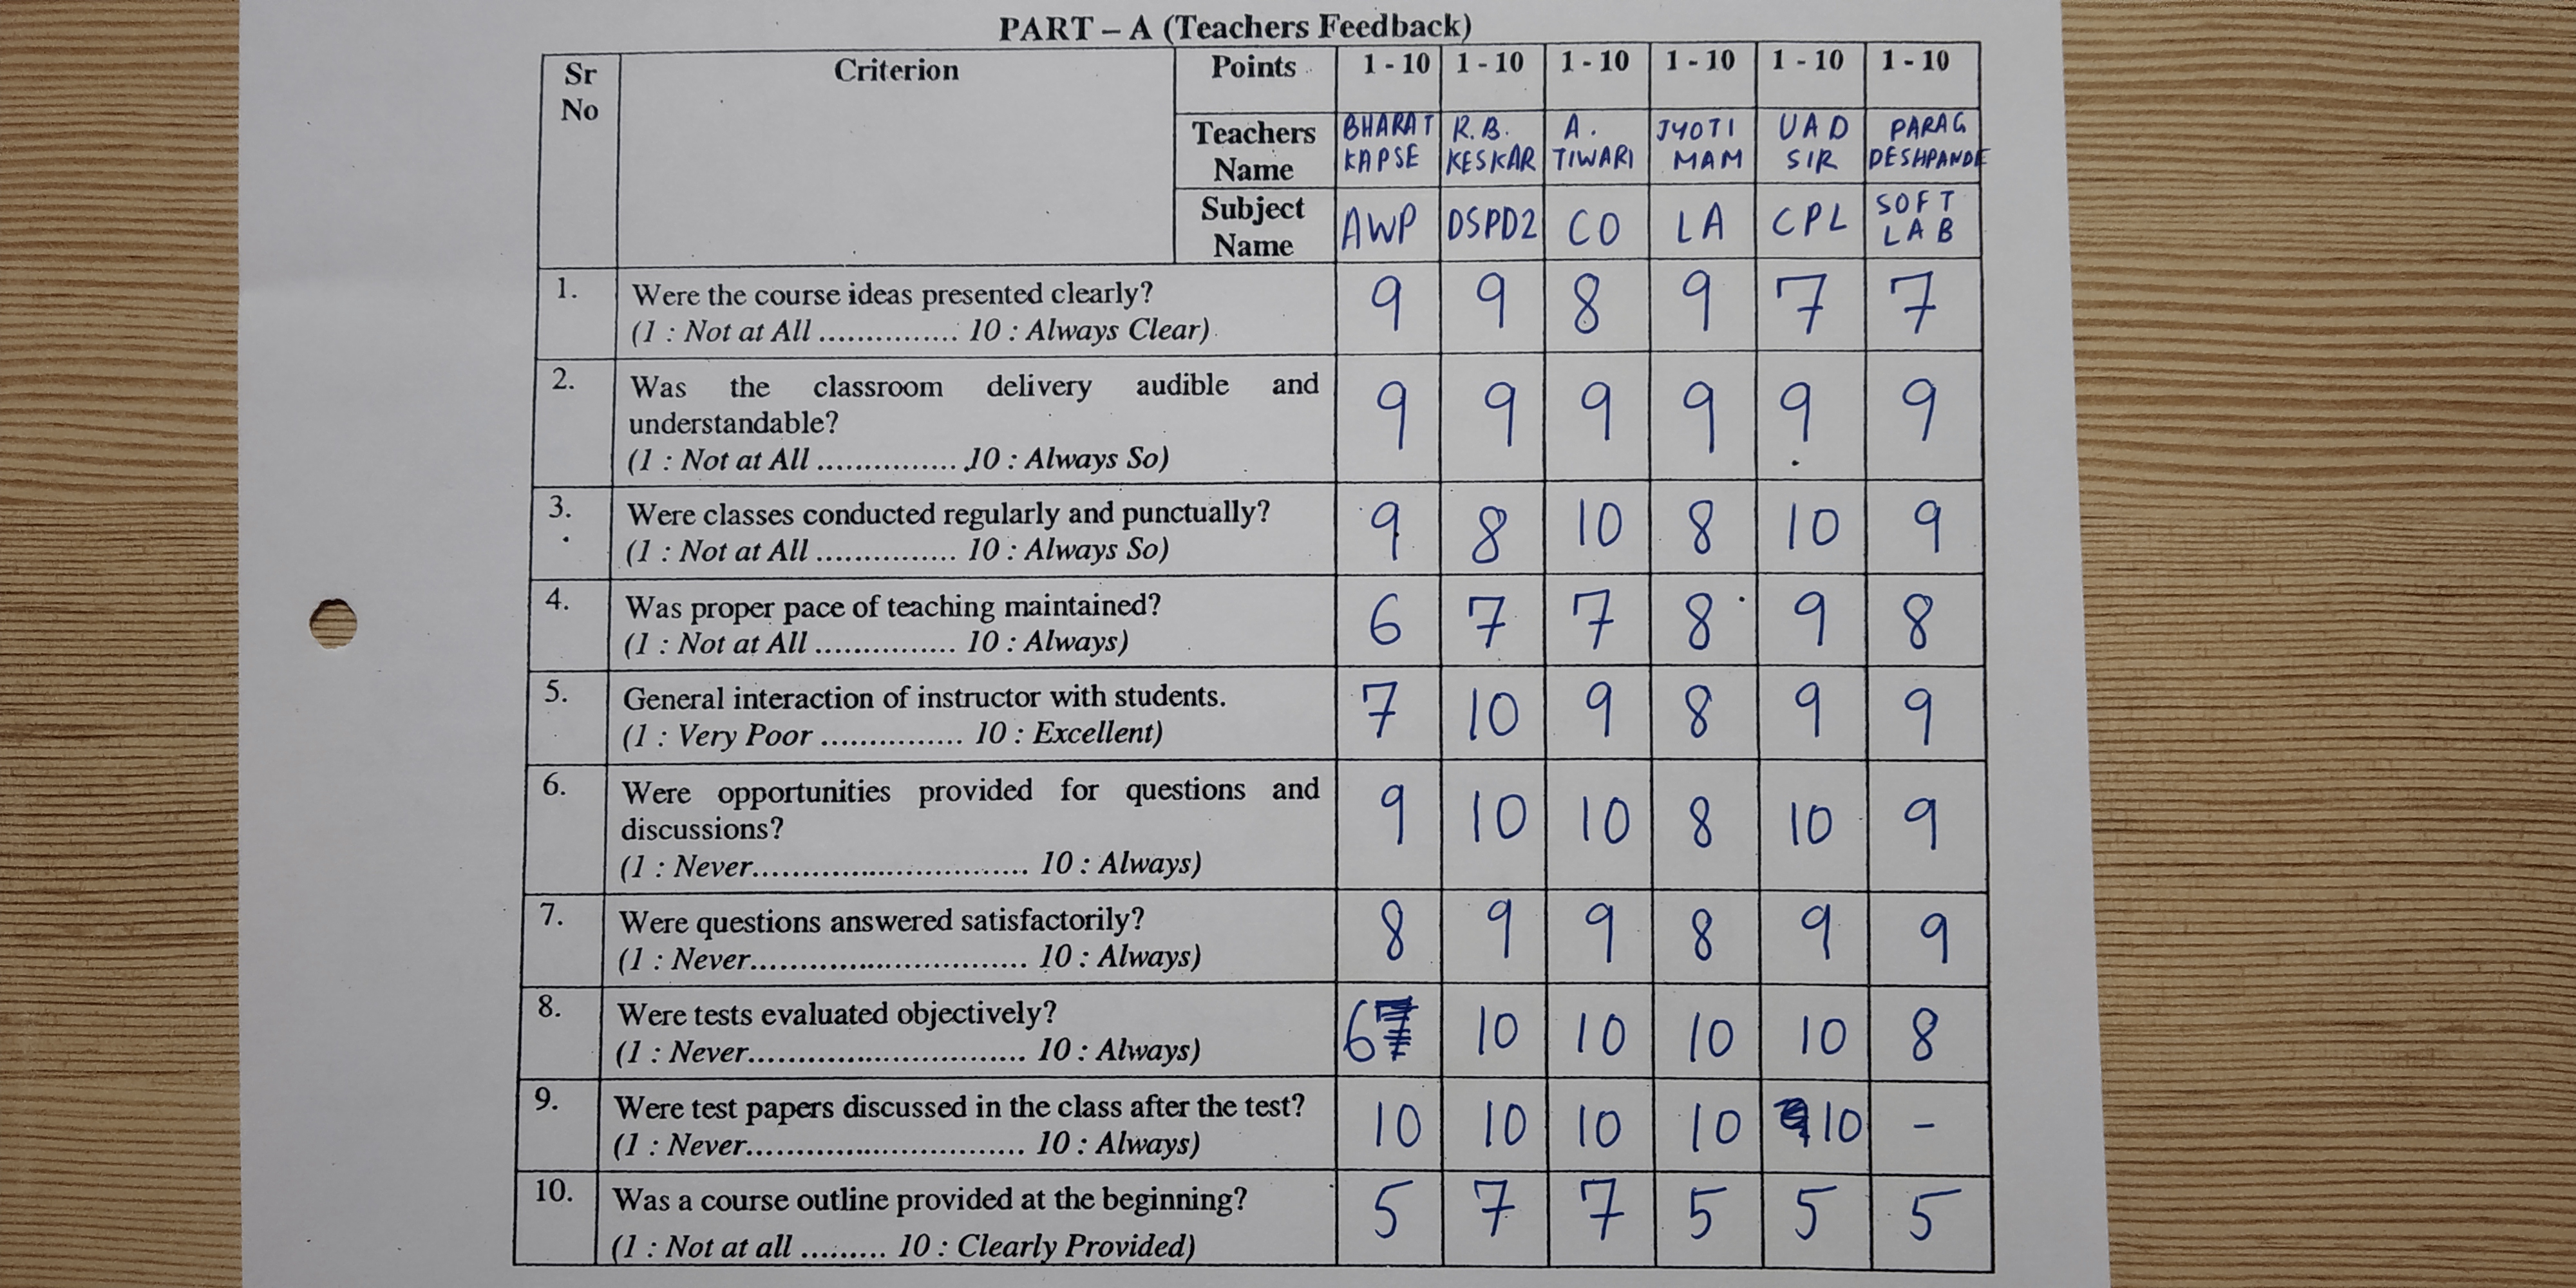 PART – A (Teachers Feedback)
Sr No Criterion Points 1 - 10 1 - 10 1 - 10 1 - 10 1 - 10 1 - 10
Teachers Name BHARAT KAPSE R.B. KESKAR A. TIWARI JYOTI MAM UAD SIR PARAG DESHPANDE
Subject Name AWP DSPD2 CO LA CPL SOFT LAB
1. Were the course ideas presented clearly? 9 9 8 9 7 7
(1 : Not at All ............... 10 : Always Clear)
2. Was the classroom delivery audible and
understandable? 9 9 9 9 9 9
(1 : Not at All ............... 10 : Always So)
3. Were classes conducted regularly and punctually? 9 8 10 8 10 9
(1 : Not at All ............... 10 : Always So)
4. Was proper pace of teaching maintained? 6 7 7 8 9 8
(1 : Not at All ............... 10 : Always)
5. General interaction of instructor with students. 7 10 9 8 9 9
(1 : Very Poor ............... 10 : Excellent)
6. Were opportunities provided for questions and
discussions? 9 10 10 8 10 9
(1 : Never.............................. 10 : Always)
7. Were questions answered satisfactorily? 8 9 9 8 9 9
(1 : Never.............................. 10 : Always)
8. Were tests evaluated objectively? 6 10 10 10 10 8
(1 : Never.............................. 10 : Always)
9. Were test papers discussed in the class after the test? 10 10 10 10 10 -
(1 : Never.............................. 10 : Always)
10. Was a course outline provided at the beginning? 5 7 7 5 5 5
(1 : Not at all ......... 10 : Clearly Provided)